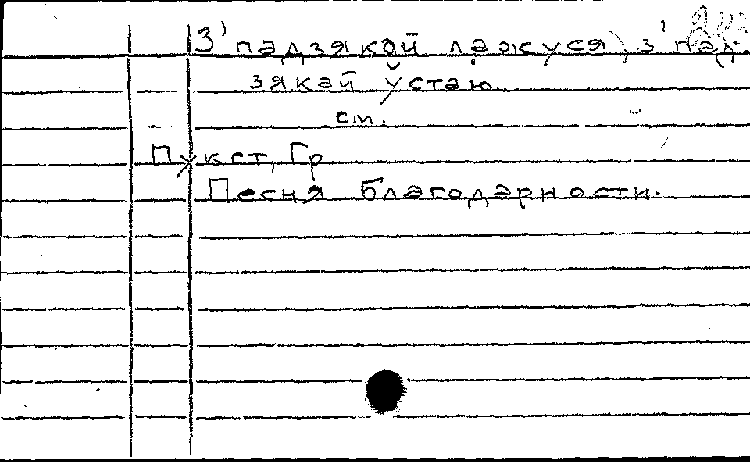 З'падзякай лажуся, з'пад-
зякай ўстаю
см.
Пукст, Гр
Песня благодарности.